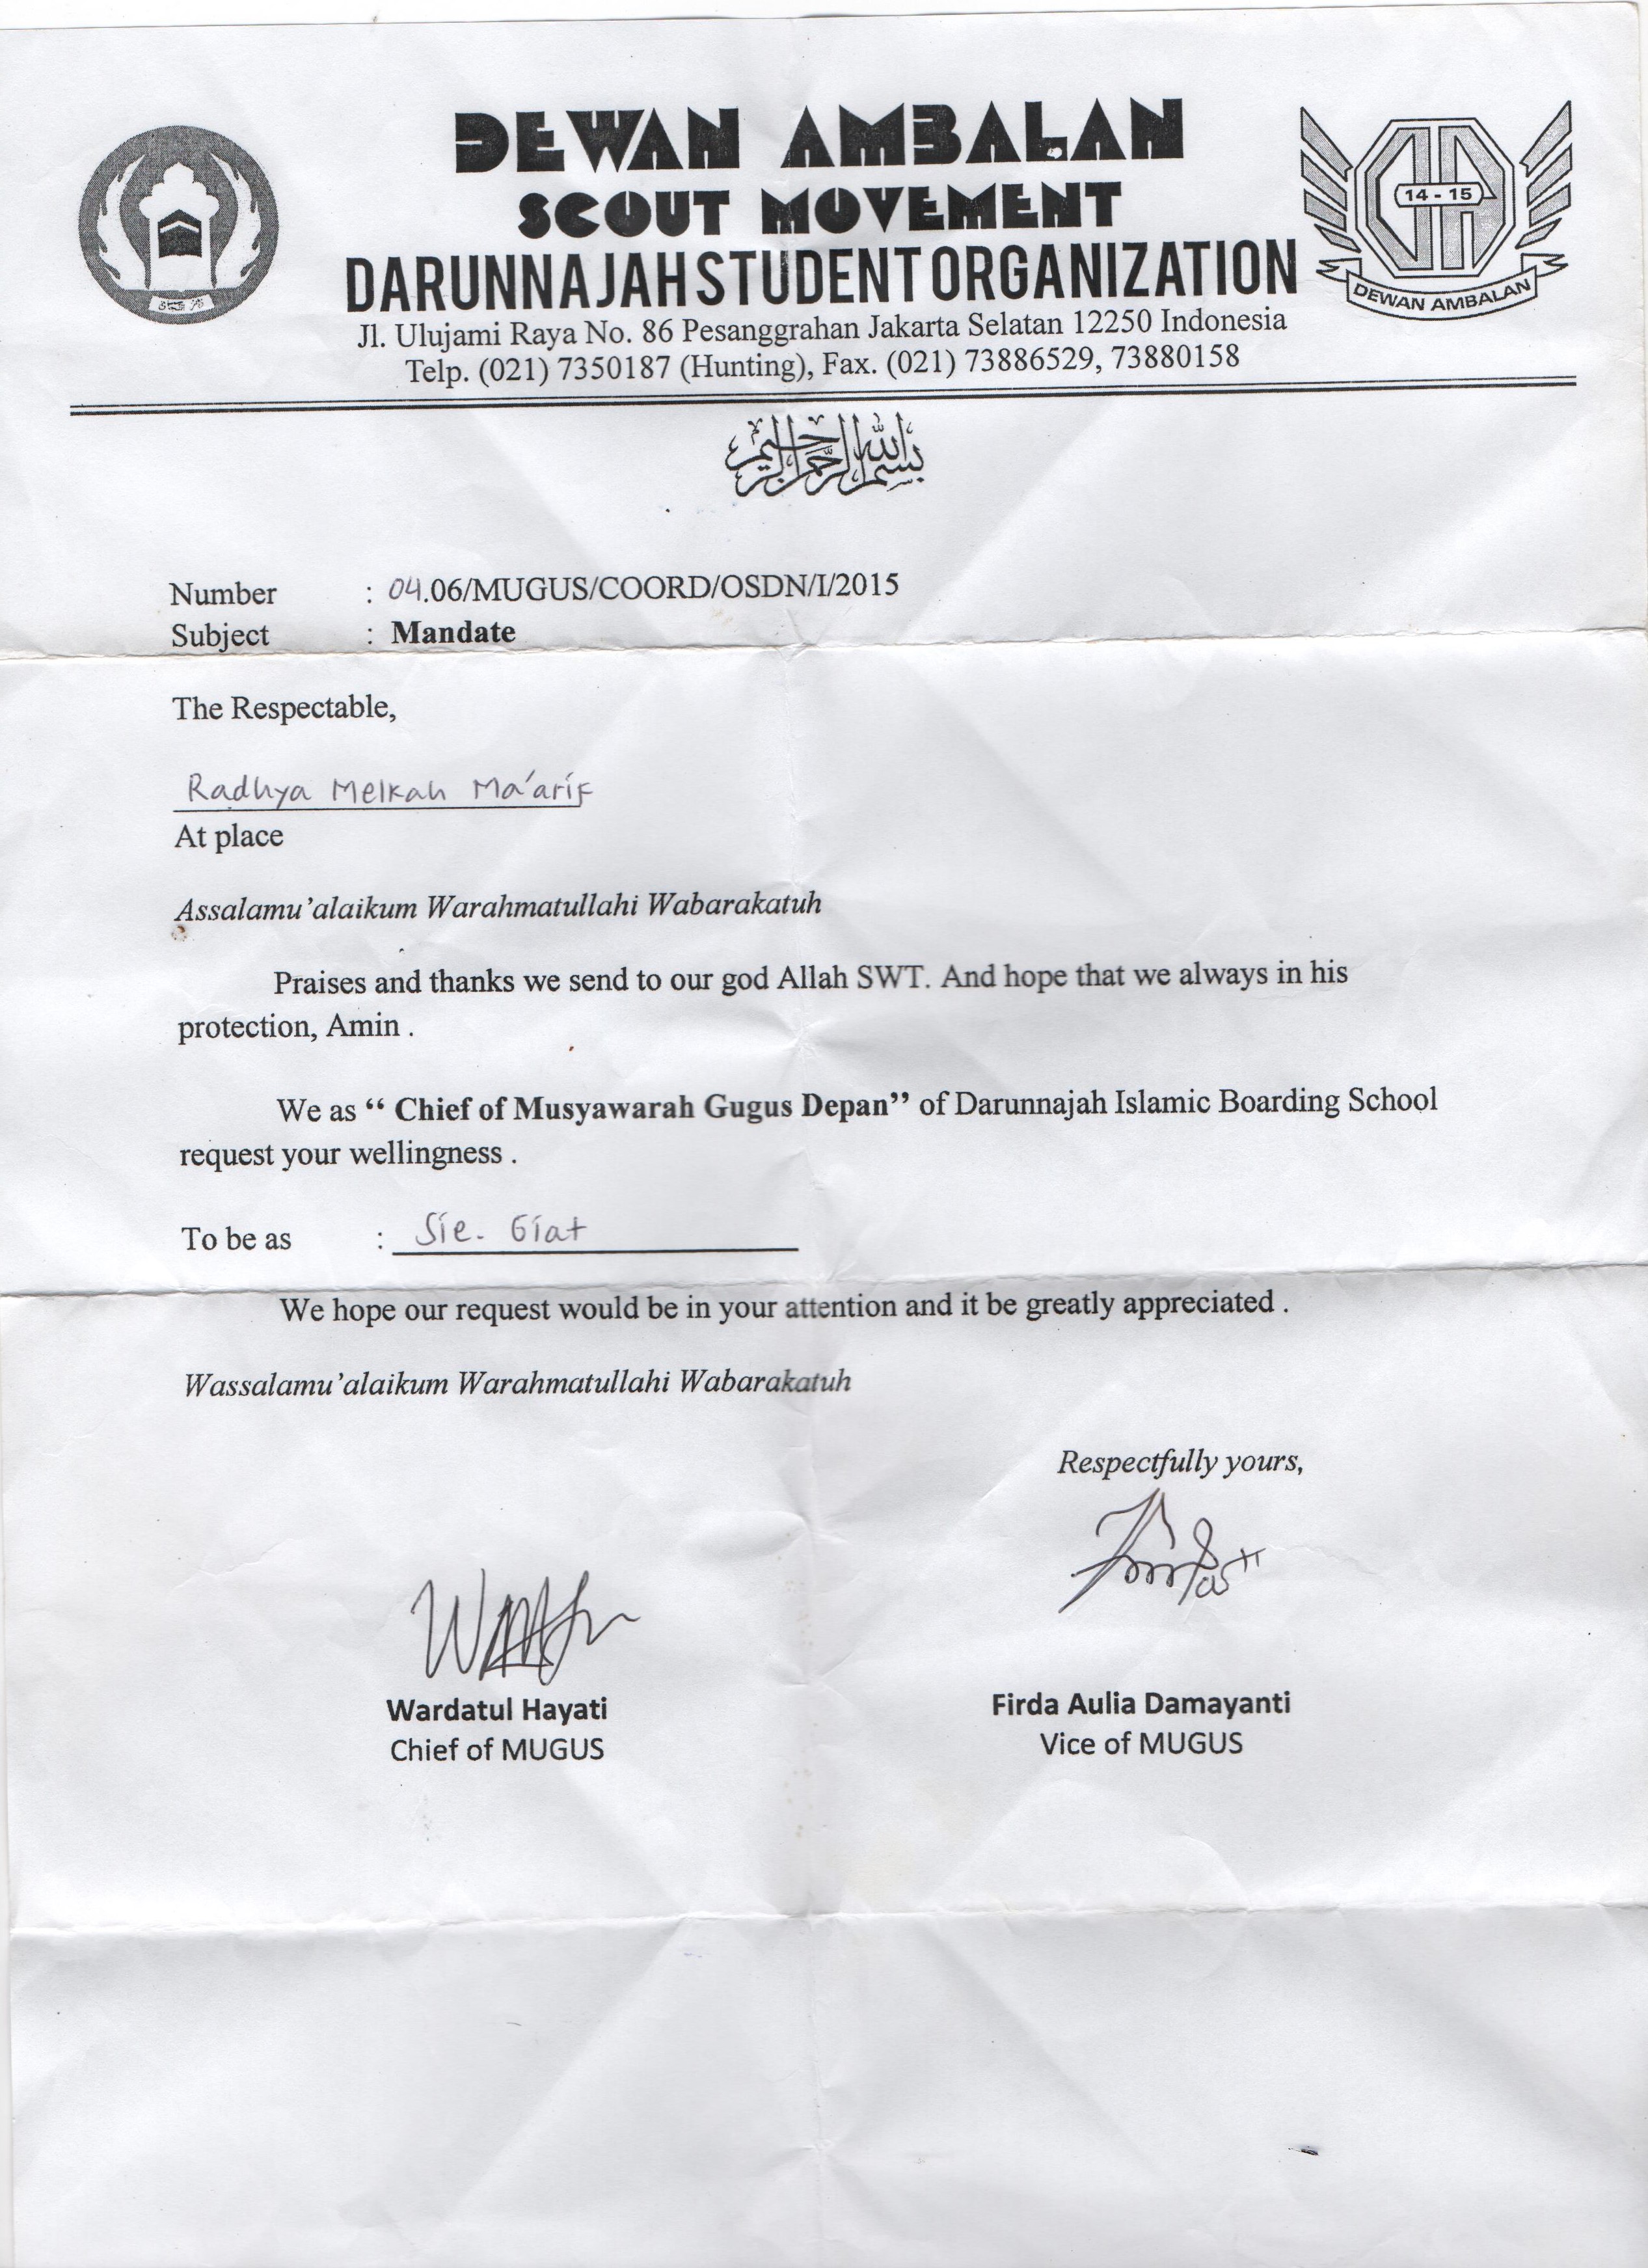 DEWAN AMBALAN
SCOUT MOVEMENT
DARUNNAJAH STUDENT ORGANIZATION
Jl. Ulujami Raya No. 86 Pesanggrahan Jakarta Selatan 12250 Indonesia
Telp. (021) 7350187 (Hunting), Fax. (021) 73886529, 73880158
14 - 15
DEWAN AMBALAN
بسم الله الرحمن الرحيم
Number : 04.06/MUGUS/COORD/OSDN/I/2015
Subject : Mandate
The Respectable,
Radhya Melkah Ma'arif
At place
Assalamu'alaikum Warahmatullahi Wabarakatuh
Praises and thanks we send to our god Allah SWT. And hope that we always in his
protection, Amin .
We as “ Chief of Musyawarah Gugus Depan” of Darunnajah Islamic Boarding School
request your wellingness .
To be as : Sie. Giat
We hope our request would be in your attention and it be greatly appreciated .
Wassalamu'alaikum Warahmatullahi Wabarakatuh
Respectfully yours,
Wardatul Hayati
Chief of MUGUS
Firda Aulia Damayanti
Vice of MUGUS